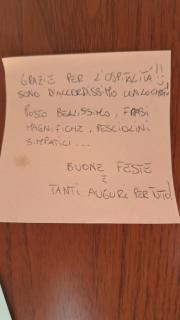 GRAZIE PER L'OSPITALITÁ!!
SONO D'ACCORDISSIMO CON
POSTO BELLISSIMO, FRASI
MAGNIFICHE, PESCIOLINI
SIMPATICI...
BUONE FESTE
E
TANTI AUGURI PER TUTTO!